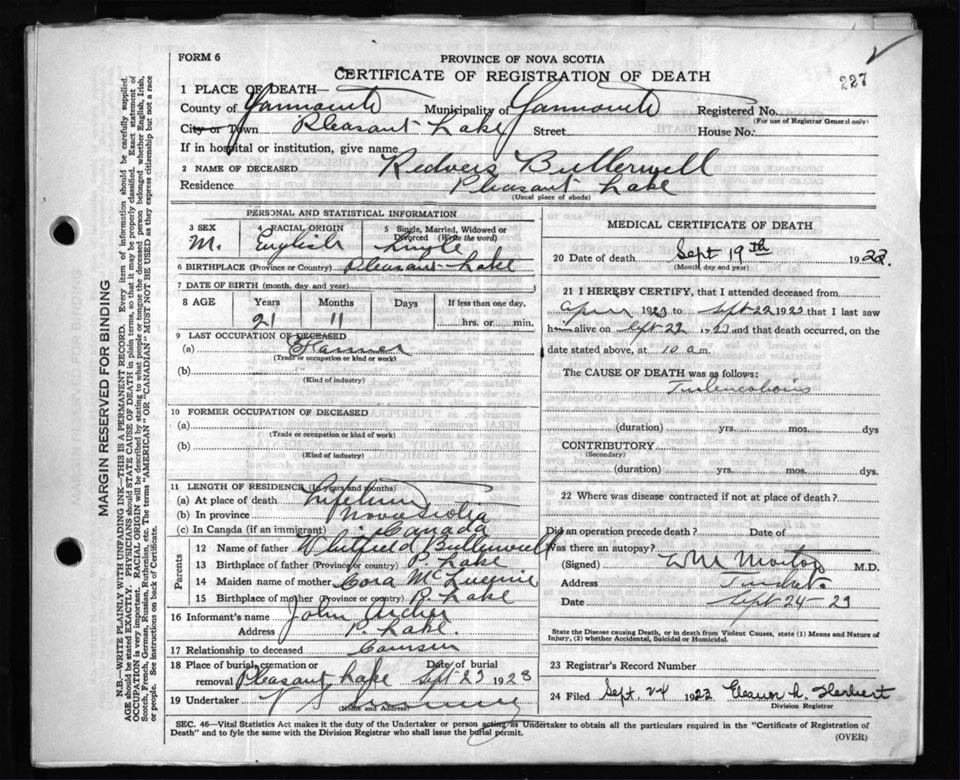 FORM 6
PROVINCE OF NOVA SCOTIA
CERTIFICATE OF REGISTRATION OF DEATH
227
1 PLACE OF DEATH—
County of Yarmouth Municipality of Yarmouth Registered No.
(For use of Registrar General only)
City or Town Pleasant Lake Street House No.
If in hospital or institution, give name
2 NAME OF DECEASED Redvers Butterwell
Residence Pleasant Lake
(Usual place of abode)
PERSONAL AND STATISTICAL INFORMATION
3 SEX 4 RACIAL ORIGIN 5 Single, Married, Widowed or Divorced (Write the word)
M. English Single
6 BIRTHPLACE (Province or Country) Pleasant Lake
7 DATE OF BIRTH (month, day and year)
8 AGE Years Months Days If less than one day,
21 11 hrs. or min.
9 LAST OCCUPATION OF DECEASED
(a) Farmer
(Trade or occupation or kind or work)
(b)
(Kind of industry)
10 FORMER OCCUPATION OF DECEASED
(a)
(Trade or occupation or kind of work)
(b)
(Kind of industry)
11 LENGTH OF RESIDENCE (In years and months)
(a) At place of death Lifetime
(b) In province Nova Scotia
(c) In Canada (if an immigrant) Canada
Parents
12 Name of father Whitfield Butterwell
13 Birthplace of father (Province or country) P. Lake
14 Maiden name of mother Cora
15 Birthplace of mother (Province or country) P. Lake
16 Informant's name John Archer
Address P. Lake.
17 Relationship to deceased
18 Place of burial, cremation or removal Pleasant Lake Date of burial Sept 23 1923
19 Undertaker
(Name and Address)
MEDICAL CERTIFICATE OF DEATH
20 Date of death Sept 19th 1923.
(Month, day and year)
21 I HEREBY CERTIFY, that I attended deceased from
1923 to Sept 22 1923 that I last saw
h alive on Sept 22 1923 and that death occurred, on the
date stated above, at 10 a m.
The CAUSE OF DEATH was as follows:
Tuberculosis
(duration) yrs. mos. dys
CONTRIBUTORY
(Secondary)
(duration) yrs. mos. dys.
22 Where was disease contracted if not at place of death?
Did an operation precede death? Date of
Was there an autopsy?
(Signed) M.D.
Address Tusket
Date Sept 24-23
State the Disease causing Death, or in death from Violent Causes, state (1) Means and Nature of Injury, (2) whether Accidental, Suicidal or Homicidal.
23 Registrar's Record Number
24 Filed Sept. 24 1923 Eleanor L. Herbert
Division Registrar
SEC. 46—Vital Statistics Act makes it the duty of the Undertaker or person acting as Undertaker to obtain all the particulars required in the "Certificate of Registration of
Death" and to fyle the same with the Division Registrar who shall issue the burial permit.
(OVER)
MARGIN RESERVED FOR BINDING
N.B.—WRITE PLAINLY WITH UNFADING INK—THIS IS A PERMANENT RECORD. Every item of information should be carefully supplied.
AGE should be stated EXACTLY. PHYSICIANS should STATE CAUSE OF DEATH in plain terms, so that it may be properly classified. Exact statement of
OCCUPATION is very important. RACIAL ORIGIN will be described by stating to what people or tongue the deceased person belonged whether English, Irish,
Scotch, French, German, Russian, Ruthenian, etc. The terms "AMERICAN" OR "CANADIAN" MUST NOT BE USED as they express citizenship but not a race
or people. See instructions on back of Certificate.